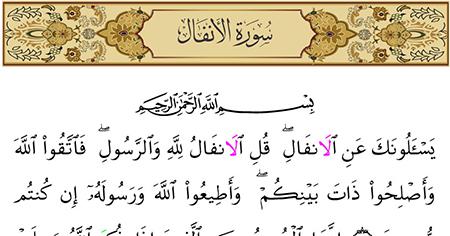 سورة الأنفال
بِسْمِ ٱللَّهِ ٱلرَّحْمَٰنِ ٱلرَّحِيمِ
يَسْـَٔلُونَكَ عَنِ ٱلَانفَالِۖ قُلِ ٱلَانفَالُ لِلَّهِ وَالرَّسُولِۖ فَٱتَّقُواْ ٱللَّهَ
وَأَصْلِحُواْ ذَاتَ بَيْنِكُمْۖ وَأَطِيعُواْ ٱللَّهَ وَرَسُولَهُۥٓ إِن كُنتُم